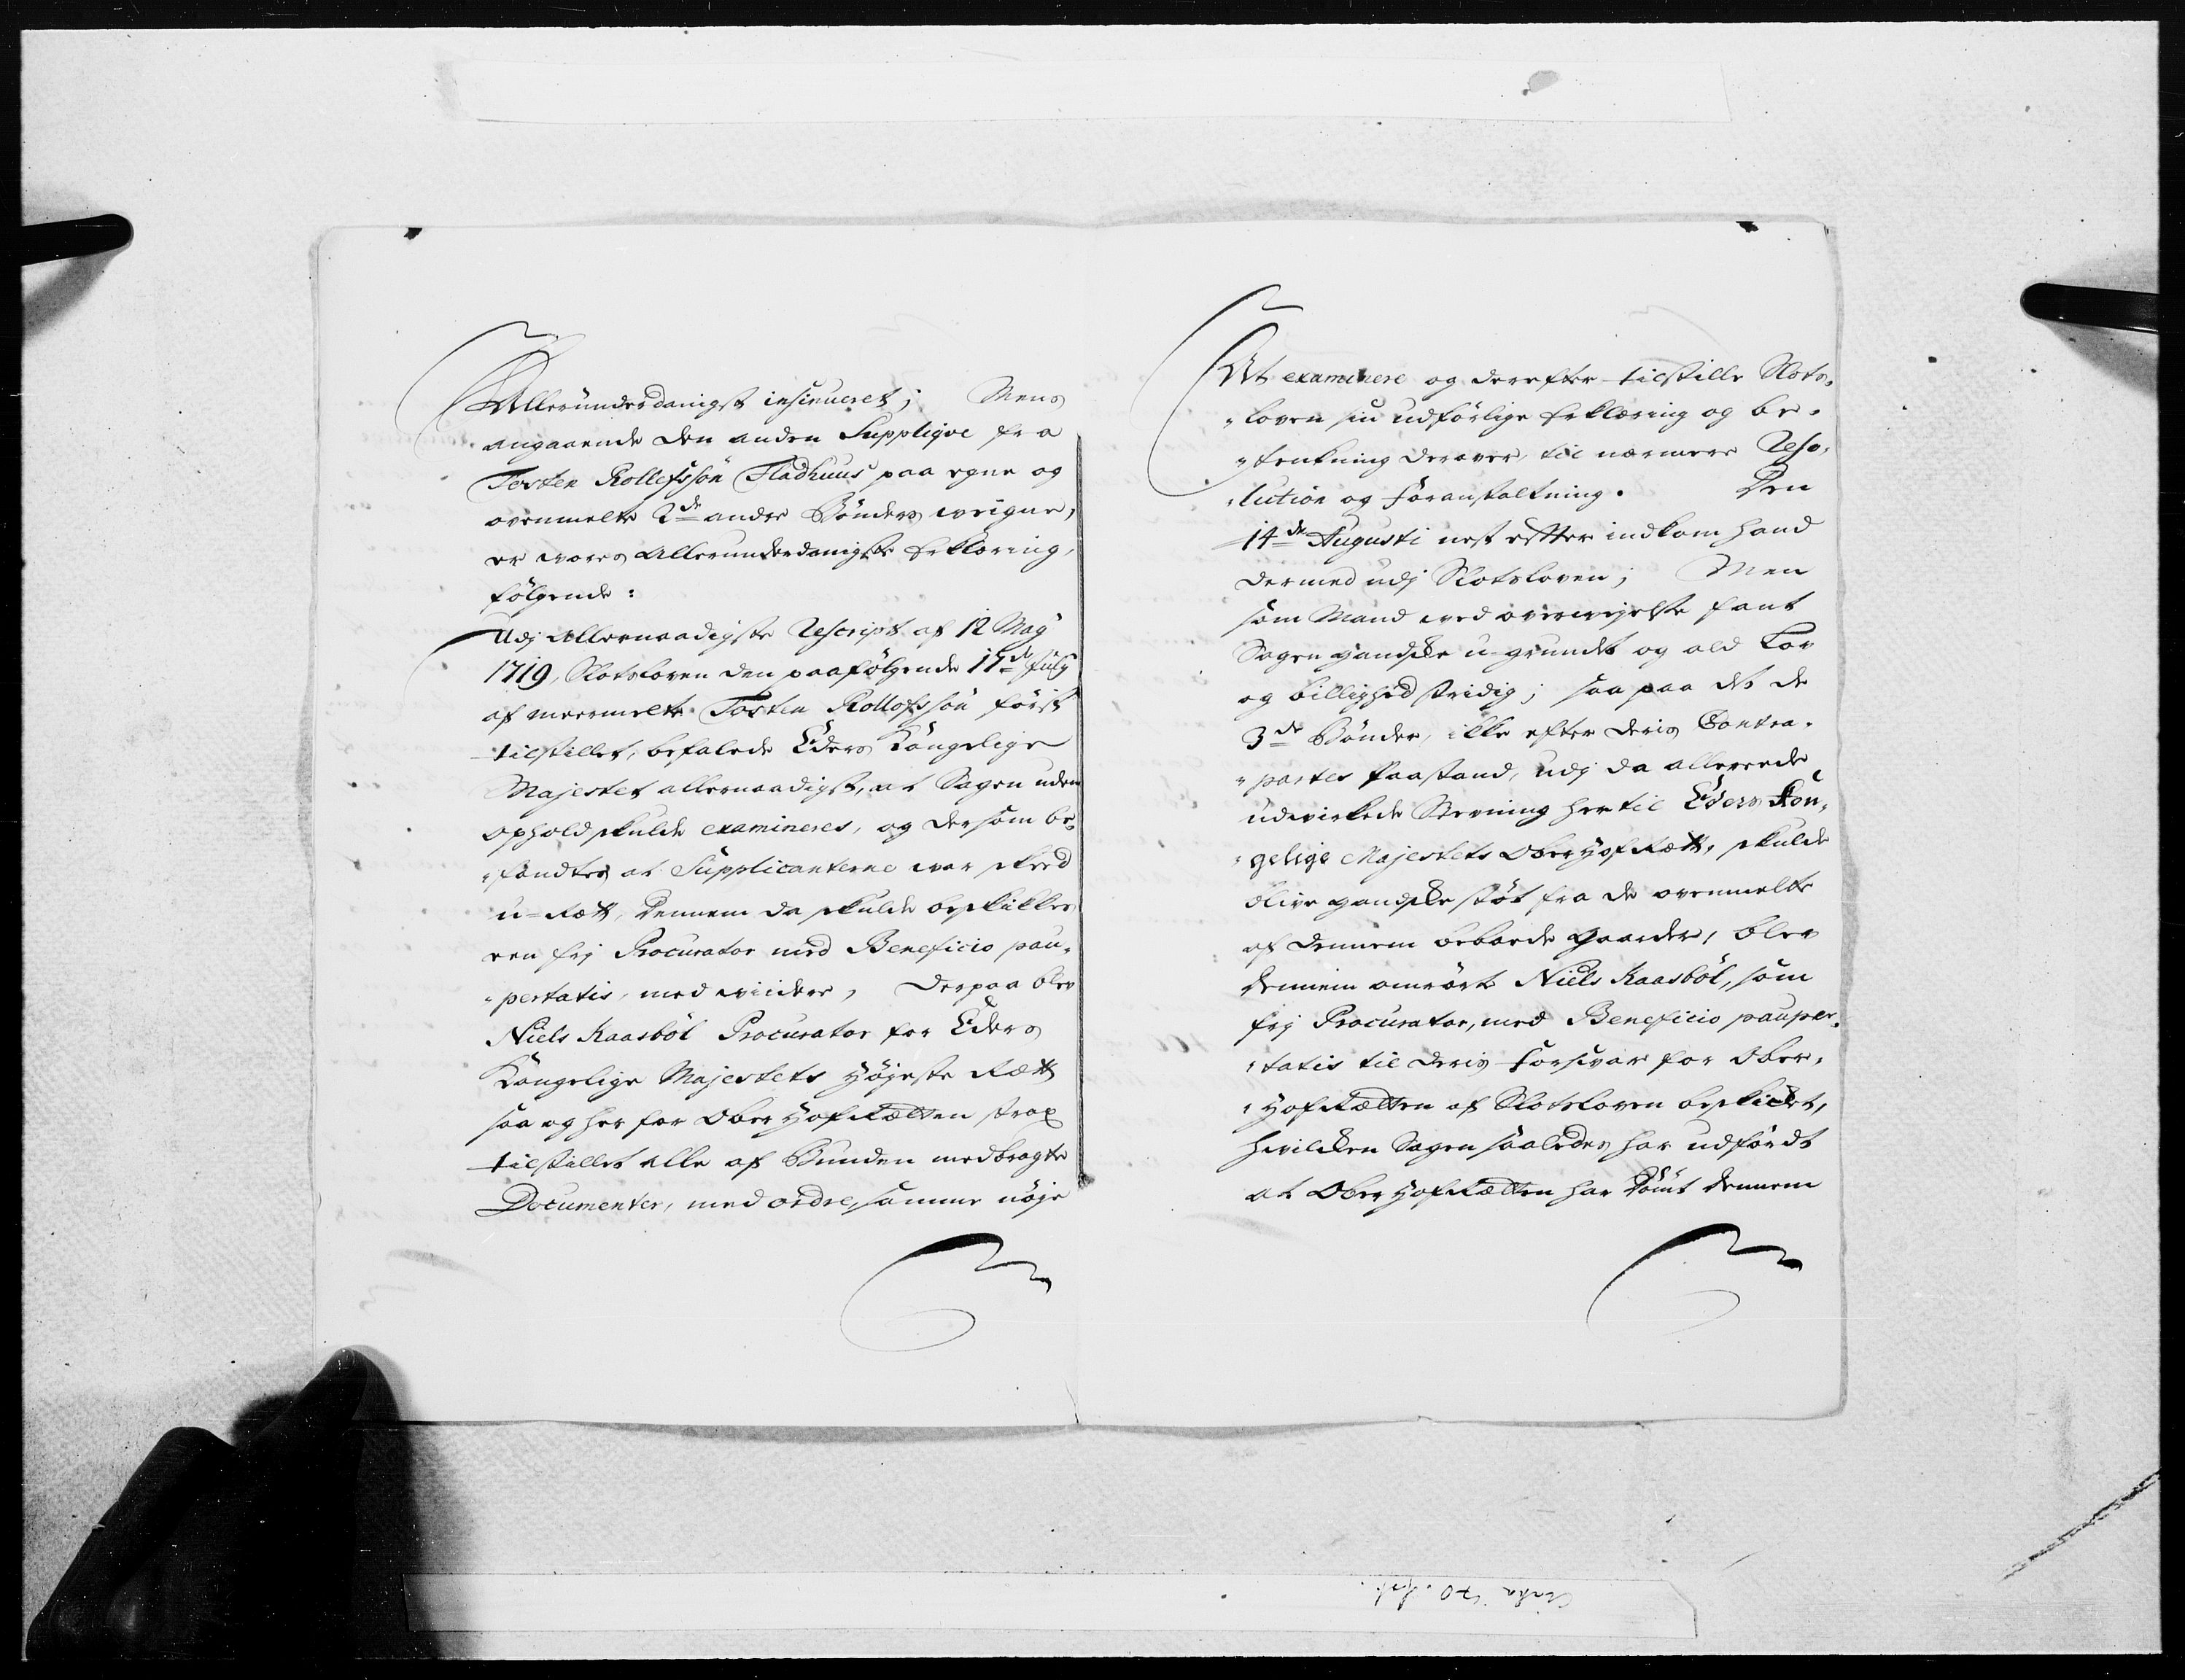 Allerunderdanigst insinueret; Mens
angaaende den anden Suppliqve fra
Tosten Rollefssön Fladhuus paa egne og
ovenmelte 2de andre Bönders weigne,
er vores Allerunderdanigste Erklæring,
fölgende:
Udj Allernaadigste Rescript af 12 May
1719, Slotsloven den paafölgende 17de July
af meermelte Tosten Rollofssön först
tilstillet, befalede Eders Kongelige
Majestet allernaadigst, at Sagen uden
ophold skulde examineres, og dersom be„
„fandtes at Supplicanterne var skeed
u-Rætt, dennem da skulde beskikkes
een frj Procurator med Beneficio pau„
„pertatis, med viidere, Derpaa blev
Niels Kaasböl Procurator for Eders
Kongelige Majestets Höjeste Rætt
saa og her for Ober Hof Rætten strax
tilstillet alle af Bunden medbragte
Documenter, med ordre, samme nöje
At examinere og derefter tilstille Slots„
„loven sin udförlige Erklæring og be„
„tenkning derover, til nærmere Reso„
„lution og foranstaltning. Den
14de Augusti nest efter indkom hand
dermed udj Slotsloven; Men
som Mand ved overvejelse fant
Sagen gandske u-grundt og ald Lov
og billighed stridig; saa paa det de
3de Bönder, ikke efter deris Contra„
„partes Paastand, udj da allereede
udvirkede Stevning hertil Eders Kon„
„gelige Majestets Ober Hof Rætt, skulde
blive gandske stöt fra de ovenmelte
af dennem beboede gaarder, blev
dennem omrört Niels Kaasböl, som
frj Procurator, med Beneficio pauper„
„tatis til deris Forsvar for Ober„
„Hof Rætten af Slotsloven beskicket,
hvilcken Sagen saaledes har udfördt
at Ober Hof Rætten har Dömt dennem